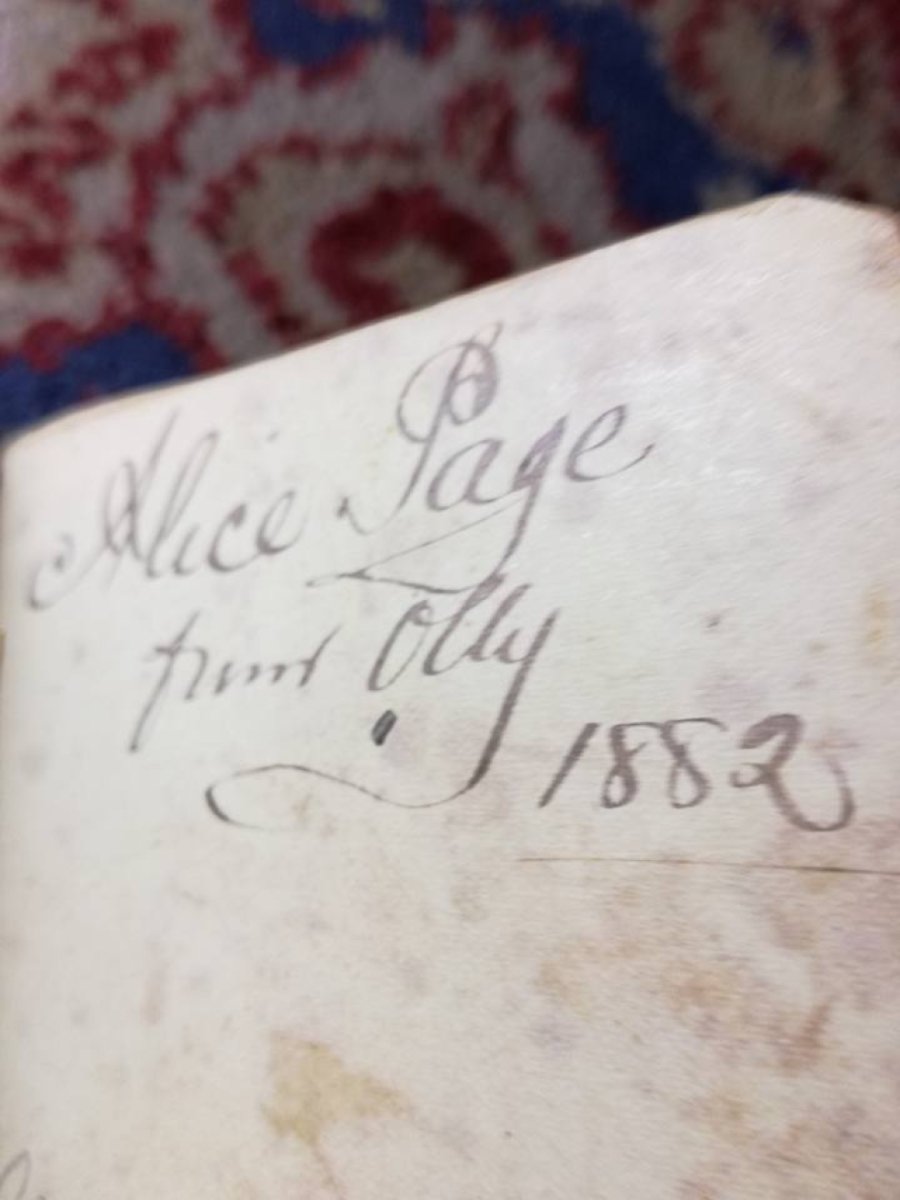 Alice Page
from Olly
1882